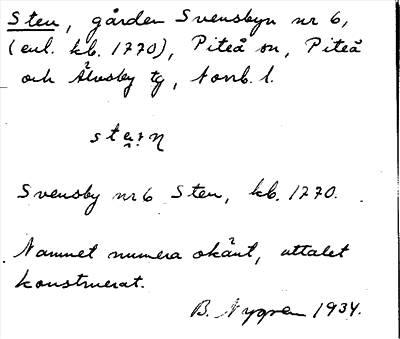 Sten, gården Svensbyn nr 6,
(enl. kb. 1770), Piteå sn, Piteå
och Älvsby tg, Norrb. l.
Svensby nr 6 Sten, kb. 1770.
Namnet numera okänt, uttalet
konstruerat.
B. Nygren 1934.